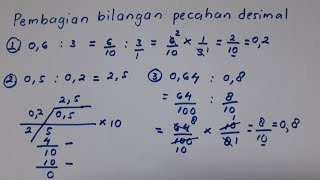 Pembagian bilangan pecahan desimal
① 0,6 : 3 = 6/10 : 3/1 = 6²/10 × 1/3₁ = 2/10 = 0,2
② 0,5 : 0,2 = 2,5
2,5
0,2 / 0,5 × 10
2 / 5
4 −
10
10 −
0
③ 0,64 : 0,8
= 64/100 : 8/10
= 64⁸/100₁₀ × 10¹/8₁ = 8/10 = 0,8